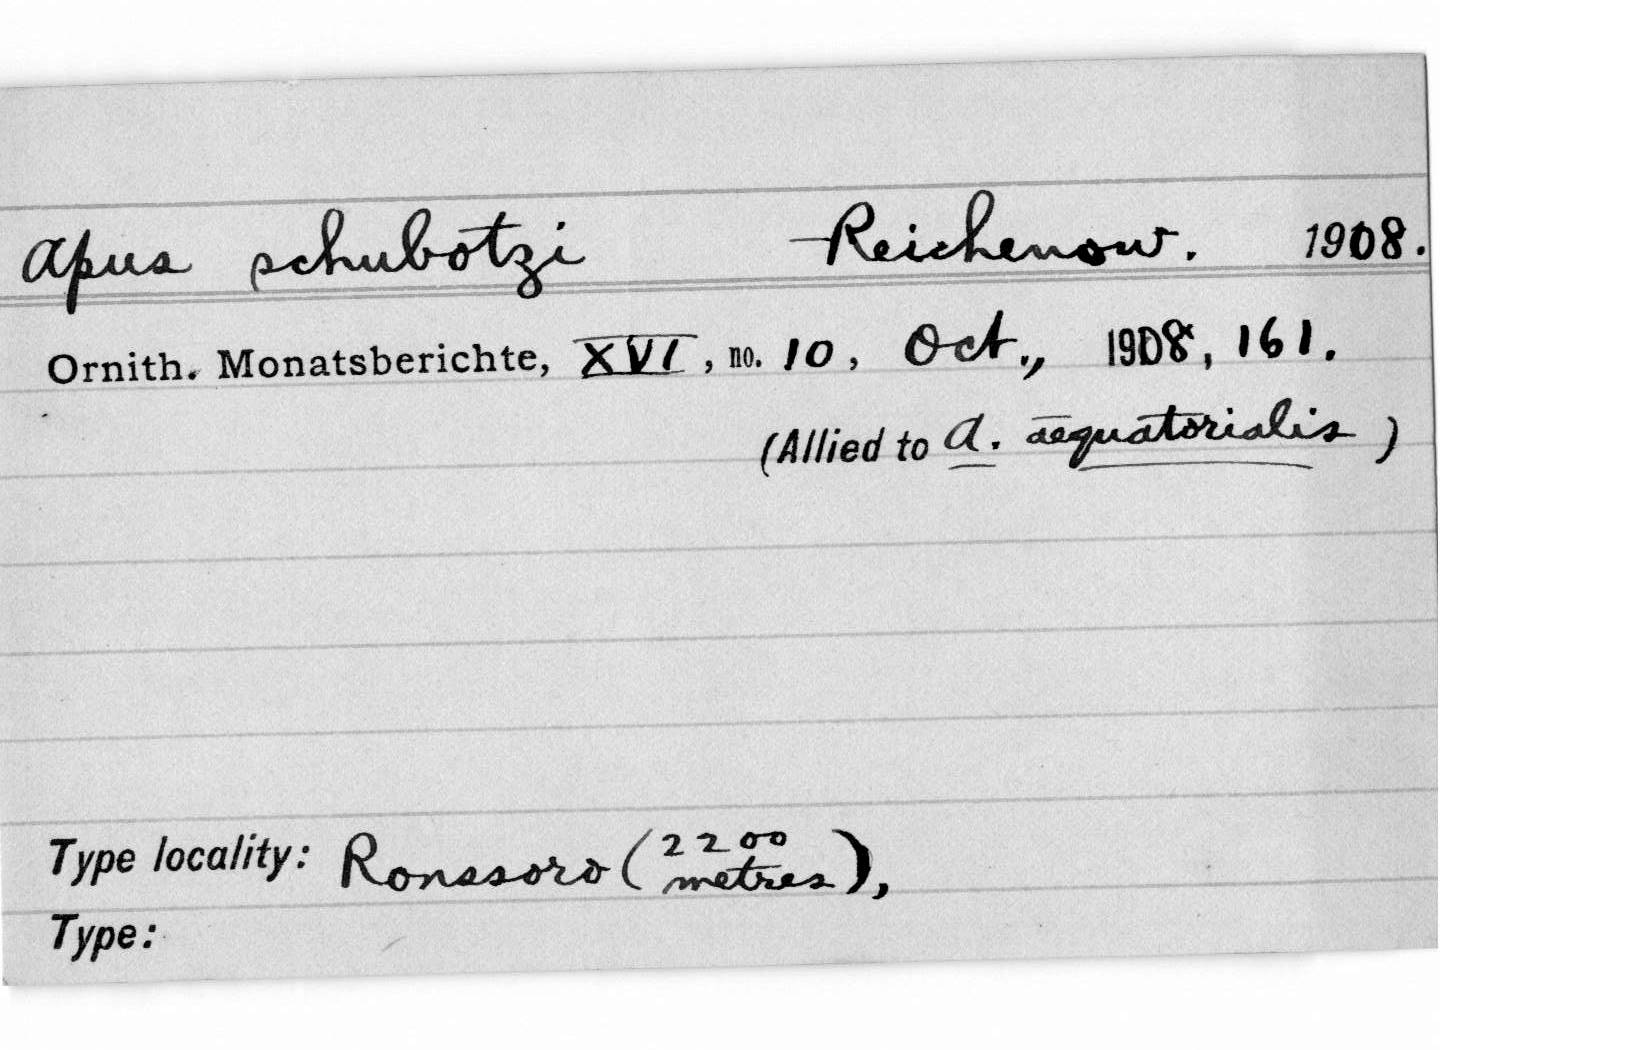 Apus schubotzi Reichenow. 1908.
Ornith. Monatsberichte, XVI, no. 10, Oct., 1908, 161.
(Allied to A. aequatorialis)
Type locality: Ronssoro (2200 metres),
Type: